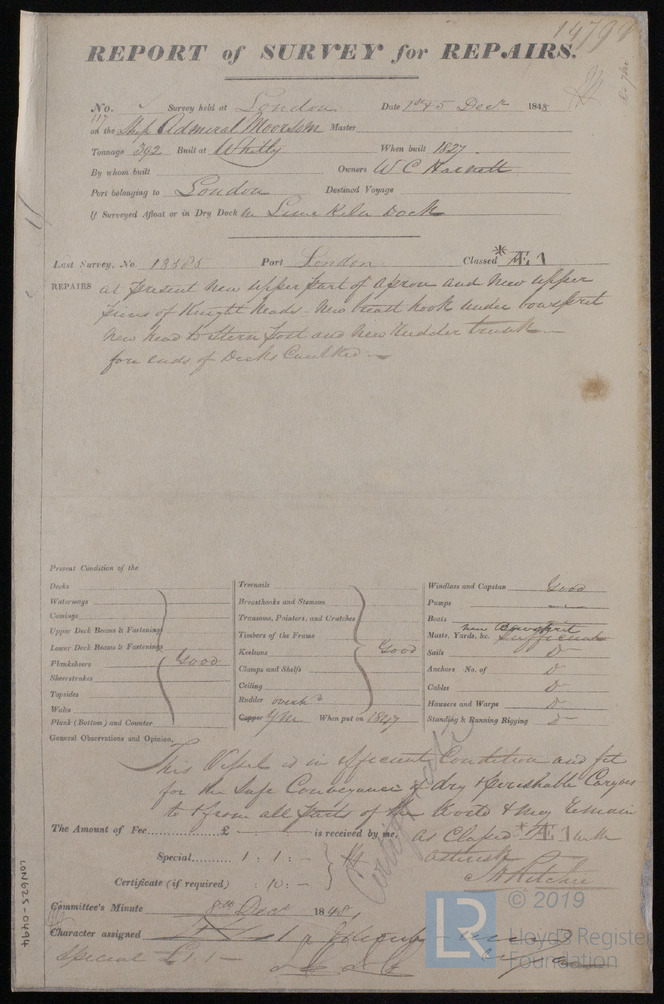 14794
REPORT of SURVEY for REPAIRS.
No. Survey held at London Date 1st & 5 Decr 1848
117
on the Ship Admiral Moorsom Master
Tonnage 392 Built at Whitby When built 1827
By whom built Owners W C
Port belonging to London Destined Voyage
If Surveyed Afloat or in Dry Dock In Lime Kiln Dock
Last Survey, No. 13585 Port London Classed *Æ1
REPAIRS at present new upper part of apron and new upper
of Knight heads - New breast hook under bowsprit
New head to Stern Post and New Rudder trunk
fore ends of Decks Caulked
Present Condition of the
Decks
Waterways
Comings
Upper Deck Beams & Fastenings
Lower Deck Beams & Fastenings
Planksheers Good
Sheerstrakes
Topsides
Wales
Plank (Bottom) and Counter
Treenails
Breasthooks and Stemson
Transoms, Pointers, and Crutches
Timbers of the Frame
Keelsons Good
Clamps and Shelfs
Ceiling
Rudder
Copper YM When put on 1847
Windlass and Capstan Good
Pumps
Boats
new Bowsprit
Masts, Yards, &c. Sufficient
Sails Do
Anchors No. of Do
Cables Do
Hawsers and Warps Do
Standing & Running Rigging Do
General Observations and Opinion,
This Vessel is in efficient Condition and fit
for the Safe Conveyance of dry & perishable Cargoes
to & from all parts of the World & may Remain
The Amount of Fee £ is received by me, as Classed *Æ1 with
Special 1 : 1 : - asterisk
Certificate (if required) : 10 : - Ritchie
Committee's Minute 8th Decr 1848
Character assigned
Special £1.1-
LON625-0494
© 2019
LR
Lloyd's Register
Foundation